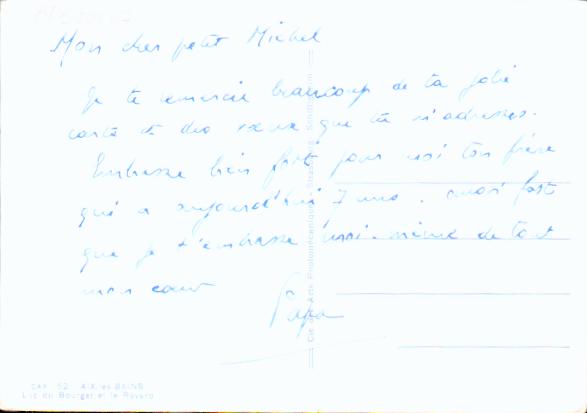 Mon cher petit Michel
Je te remercie beaucoup de ta jolie
carte et des vœux que tu m'adresses.
Embrasse bien fort pour moi ton frère
qui a aujourd'hui 7 ans. aussi fort
que je t'embrasse moi-même de tout
mon cœur
Papa
Cie des Arts Photomécaniques - Strasbourg - Schiltigheim
CAP. 52 AIX-les-BAINS
Lac du Bourget et le Revard